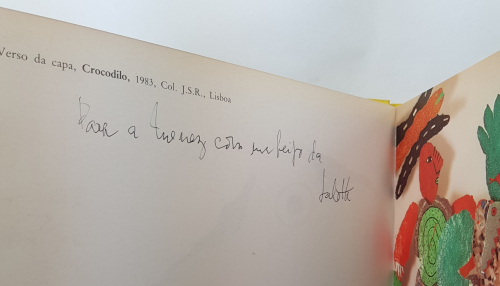 Verso da capa, Crocodilo, 1983, Col. J.S.R., Lisboa
Para a com um beijo da